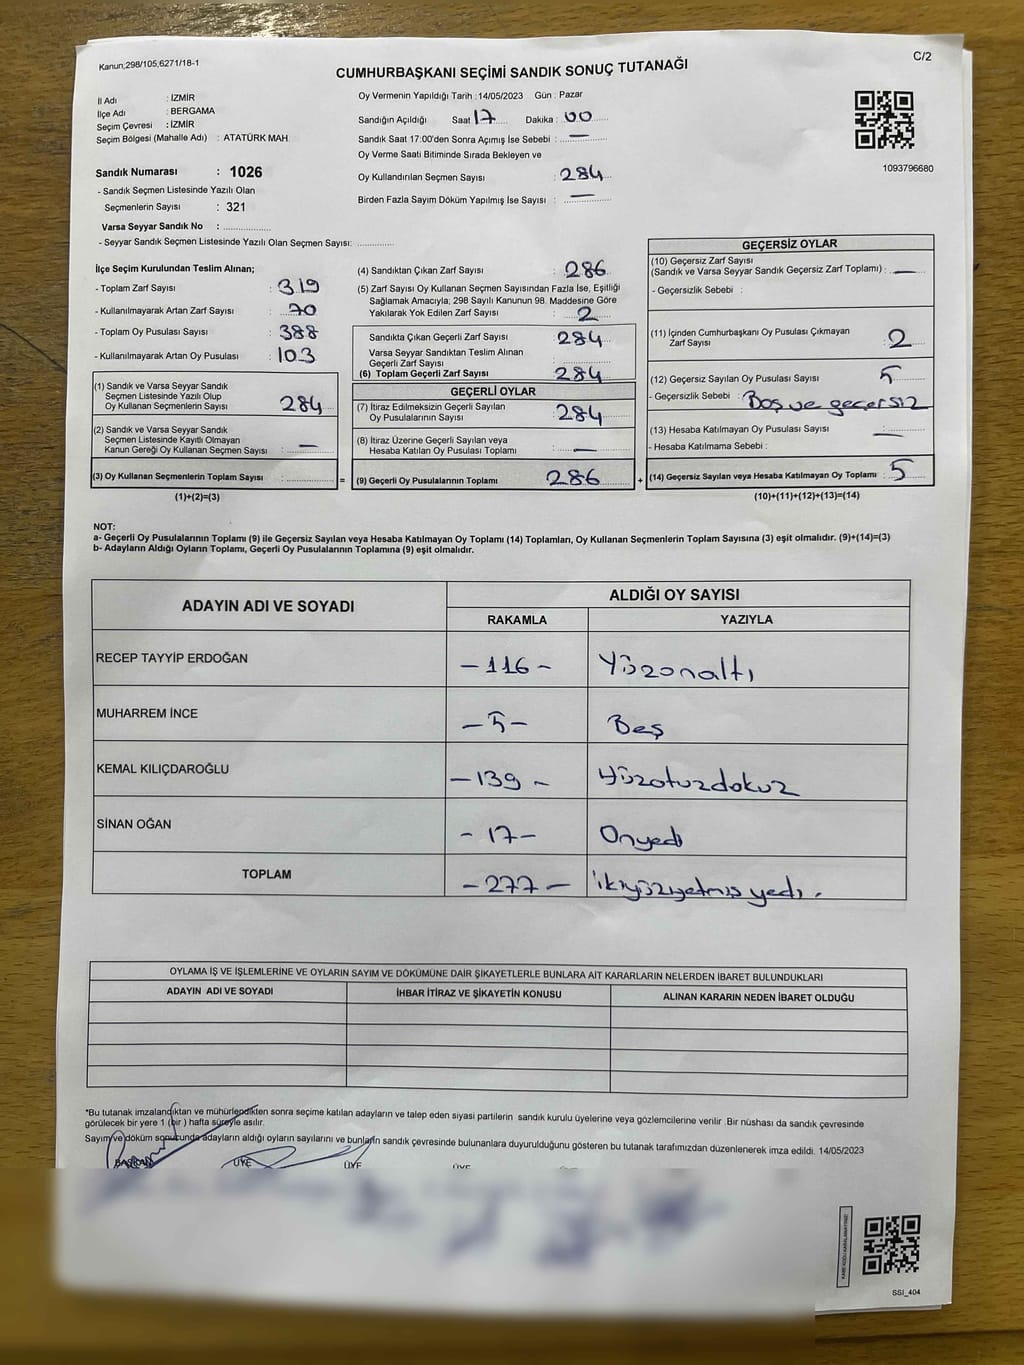 Kanun;298/105,6271/18-1
C/2
CUMHURBAŞKANI SEÇİMİ SANDIK SONUÇ TUTANAĞI
İl Adı : İZMİR
İlçe Adı : BERGAMA
Seçim Çevresi : İZMİR
Seçim Bölgesi (Mahalle Adı) : ATATÜRK MAH.
Sandık Numarası : 1026
- Sandık Seçmen Listesinde Yazılı Olan
Seçmenlerin Sayısı : 321
Varsa Seyyar Sandık No : ................
- Seyyar Sandık Seçmen Listesinde Yazılı Olan Seçmen Sayısı: ............
Oy Vermenin Yapıldığı Tarih : 14/05/2023 Gün : Pazar
Sandığın Açıldığı Saat 17 Dakika : 00
Sandık Saat 17:00'den Sonra Açımış İse Sebebi : —
Oy Verme Saati Bitiminde Sırada Bekleyen ve
Oy Kullandırılan Seçmen Sayısı : 284
Birden Fazla Sayım Döküm Yapılmış İse Sayısı : —
1093796680
İlçe Seçim Kurulundan Teslim Alınan;
- Toplam Zarf Sayısı : 319
- Kullanılmayarak Artan Zarf Sayısı : 70
- Toplam Oy Pusulası Sayısı : 388
- Kullanılmayarak Artan Oy Pusulası : 103
(1) Sandık ve Varsa Seyyar Sandık
Seçmen Listesinde Yazılı Olup
Oy Kullanan Seçmenlerin Sayısı : 284
(2) Sandık ve Varsa Seyyar Sandık
Seçmen Listesinde Kayıtlı Olmayan
Kanun Gereği Oy Kullanan Seçmen Sayısı : —
(3) Oy Kullanan Seçmenlerin Toplam Sayısı : ............
(1)+(2)=(3)
=
(4) Sandıktan Çıkan Zarf Sayısı : 286
(5) Zarf Sayısı Oy Kullanan Seçmen Sayısından Fazla İse, Eşitliği
Sağlamak Amacıyla; 298 Sayılı Kanunun 98. Maddesine Göre
Yakılarak Yok Edilen Zarf Sayısı : 2
Sandıkta Çıkan Geçerli Zarf Sayısı : 284
Varsa Seyyar Sandıktan Teslim Alınan
Geçerli Zarf Sayısı : ............
(6) Toplam Geçerli Zarf Sayısı : 284
GEÇERLİ OYLAR
(7) İtiraz Edilmeksizin Geçerli Sayılan
Oy Pusulalarının Sayısı : 284
(8) İtiraz Üzerine Geçerli Sayılan veya
Hesaba Katılan Oy Pusulası Toplamı : —
(9) Geçerli Oy Pusulalarının Toplamı : 286
+
GEÇERSİZ OYLAR
(10) Geçersiz Zarf Sayısı
(Sandık ve Varsa Seyyar Sandık Geçersiz Zarf Toplamı) : —
- Geçersizlik Sebebi :
(11) İçinden Cumhurbaşkanı Oy Pusulası Çıkmayan
Zarf Sayısı : 2
(12) Geçersiz Sayılan Oy Pusulası Sayısı : 5
- Geçersizlik Sebebi : Boş ve geçersiz
(13) Hesaba Katılmayan Oy Pusulası Sayısı : —
- Hesaba Katılmama Sebebi :
(14) Geçersiz Sayılan veya Hesaba Katılmayan Oy Toplamı : 5
(10)+(11)+(12)+(13)=(14)
NOT:
a- Geçerli Oy Pusulalarının Toplamı (9) ile Geçersiz Sayılan veya Hesaba Katılmayan Oy Toplamı (14) Toplamları, Oy Kullanan Seçmenlerin Toplam Sayısına (3) eşit olmalıdır. (9)+(14)=(3)
b- Adayların Aldığı Oyların Toplamı, Geçerli Oy Pusulalarının Toplamına (9) eşit olmalıdır.
ADAYIN ADI VE SOYADI ALDIĞI OY SAYISI
RAKAMLA YAZIYLA
RECEP TAYYİP ERDOĞAN - 116 - Yüzonaltı
MUHARREM İNCE - 5 - Beş
KEMAL KILIÇDAROĞLU - 139 - Yüzotuzdokuz
SİNAN OĞAN - 17 - Onyedi
TOPLAM - 277 - ikiyüzyetmişyedi.
OYLAMA İŞ VE İŞLEMLERİNE VE OYLARIN SAYIM VE DÖKÜMÜNE DAİR ŞİKAYETLERLE BUNLARA AİT KARARLARIN NELERDEN İBARET BULUNDUKLARI
ADAYIN ADI VE SOYADI İHBAR İTİRAZ VE ŞİKAYETİN KONUSU ALINAN KARARIN NEDEN İBARET OLDUĞU
*Bu tutanak imzalandıktan ve mühürlendikten sonra seçime katılan adayların ve talep eden siyasi partilerin sandık kurulu üyelerine veya gözlemcilerine verilir. Bir nüshası da sandık çevresinde
görülecek bir yere 1 (bir) hafta süreyle asılır.
Sayım ve döküm sonucunda adayların aldığı oyların sayılarını ve bunların sandık çevresinde bulunanlara duyurulduğunu gösteren bu tutanak tarafımızdan düzenlenerek imza edildi. 14/05/2023
BAŞKAN ÜYE ÜYE ÜYE
SSI_404